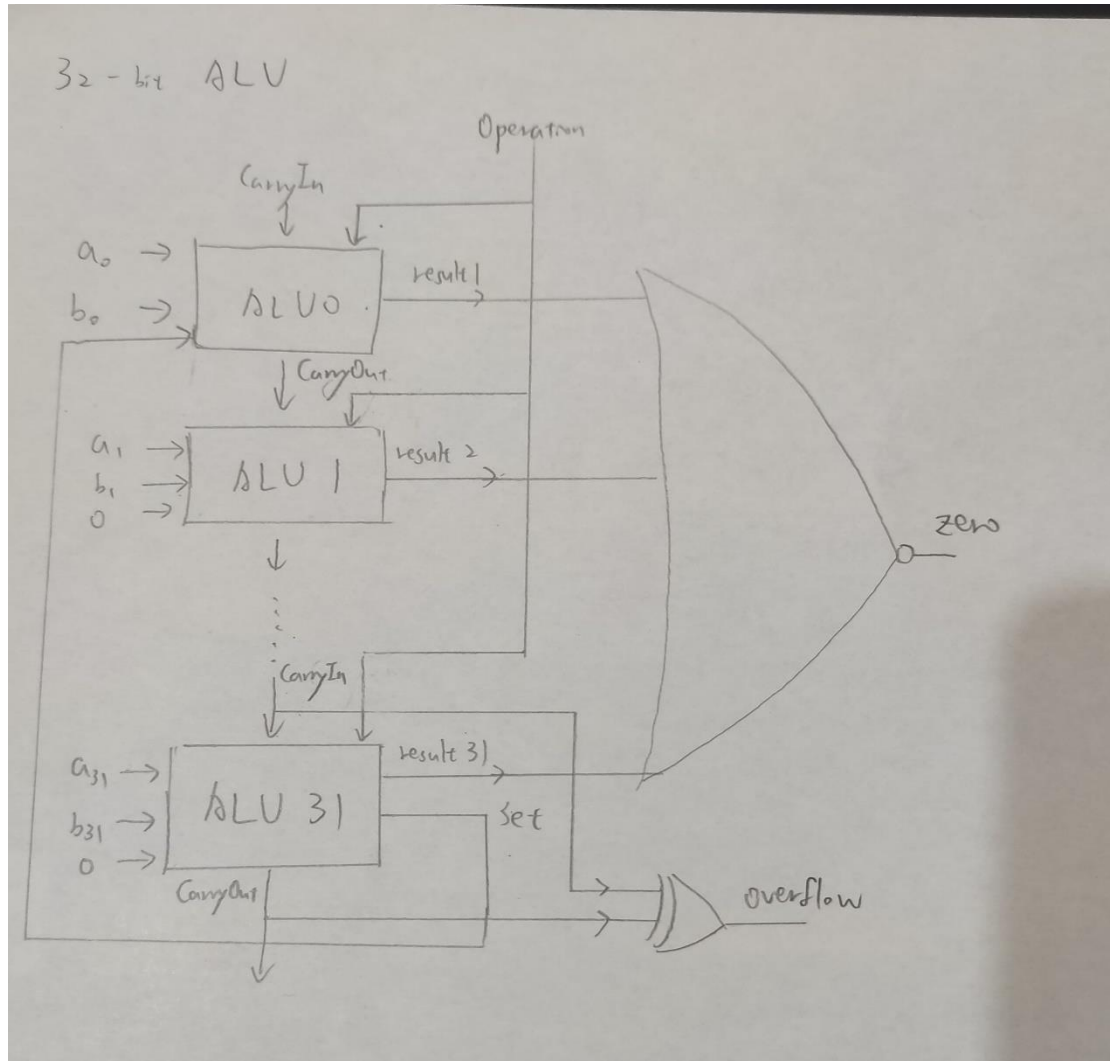 32-bit ALU
Operation
CarryIn
a0
b0
ALU0
result1
CarryOut
a1
b1
0
ALU 1
result 2
zero
CarryIn
a31
b31
0
ALU 31
result 31
set
CarryOut
overflow